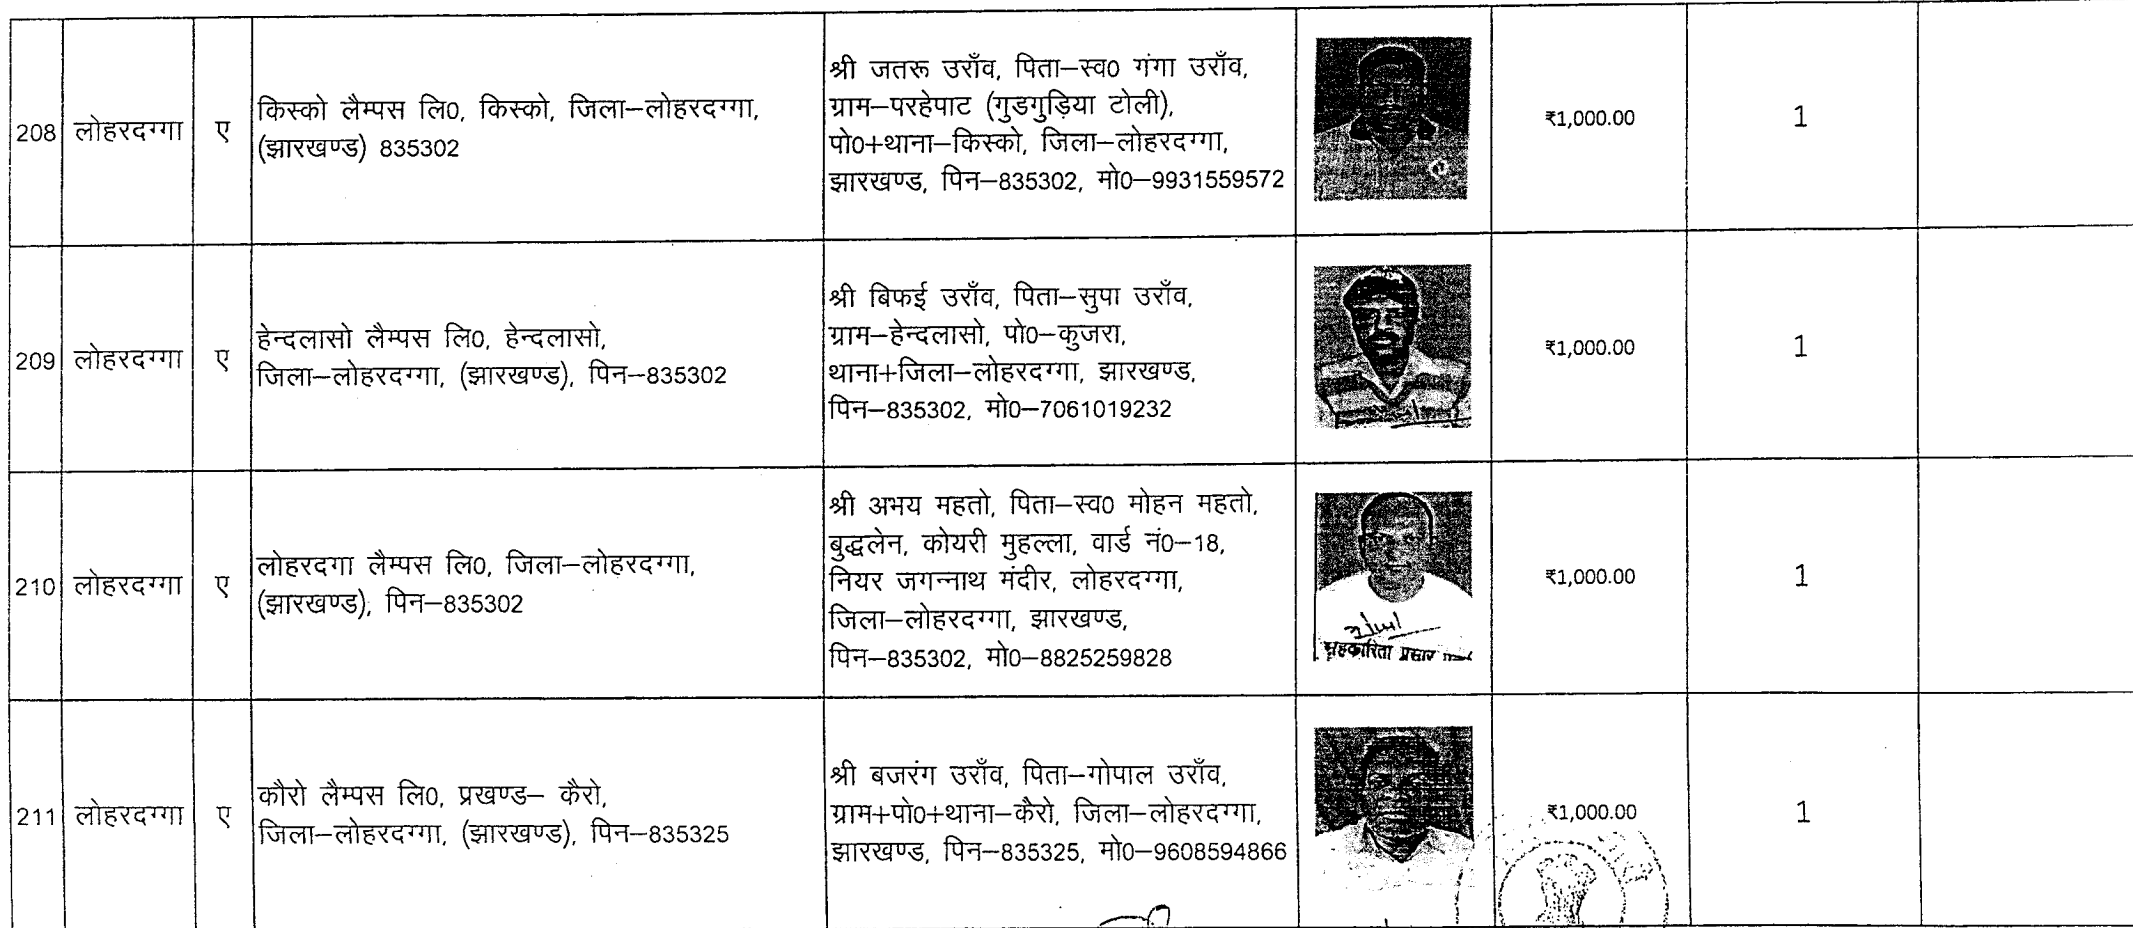 208
लोहरदग्गा
ए
किस्को लैम्पस लि0, किस्को, जिला–लोहरदग्गा,
(झारखण्ड) 835302
श्री जतरू उराँव, पिता–स्व0 गंगा उराँव,
ग्राम–परहेपाट (गुडगुड़िया टोली),
पो0+थाना–किस्को, जिला–लोहरदग्गा,
झारखण्ड, पिन–835302, मो0–9931559572
₹1,000.00
1
209
लोहरदग्गा
ए
हेन्दलासो लैम्पस लि0, हेन्दलासो,
जिला–लोहरदग्गा, (झारखण्ड), पिन–835302
श्री बिफई उराँव, पिता–सुपा उराँव,
ग्राम–हेन्दलासो, पो0–कुजरा,
थाना+जिला–लोहरदग्गा, झारखण्ड,
पिन–835302, मो0–7061019232
₹1,000.00
1
210
लोहरदग्गा
ए
लोहरदगा लैम्पस लि0, जिला–लोहरदग्गा,
(झारखण्ड), पिन–835302
श्री अभय महतो, पिता–स्व0 मोहन महतो,
बुद्धलेन, कोयरी मुहल्ला, वार्ड नं0–18,
नियर जगन्नाथ मंदीर, लोहरदग्गा,
जिला–लोहरदग्गा, झारखण्ड,
पिन–835302, मो0–8825259828
सहकारिता प्रसार
₹1,000.00
1
211
लोहरदग्गा
ए
कौरो लैम्पस लि0, प्रखण्ड– कैरो,
जिला–लोहरदग्गा, (झारखण्ड), पिन–835325
श्री बजरंग उराँव, पिता–गोपाल उराँव,
ग्राम+पो0+थाना–कैरो, जिला–लोहरदग्गा,
झारखण्ड, पिन–835325, मो0–9608594866
₹1,000.00
1